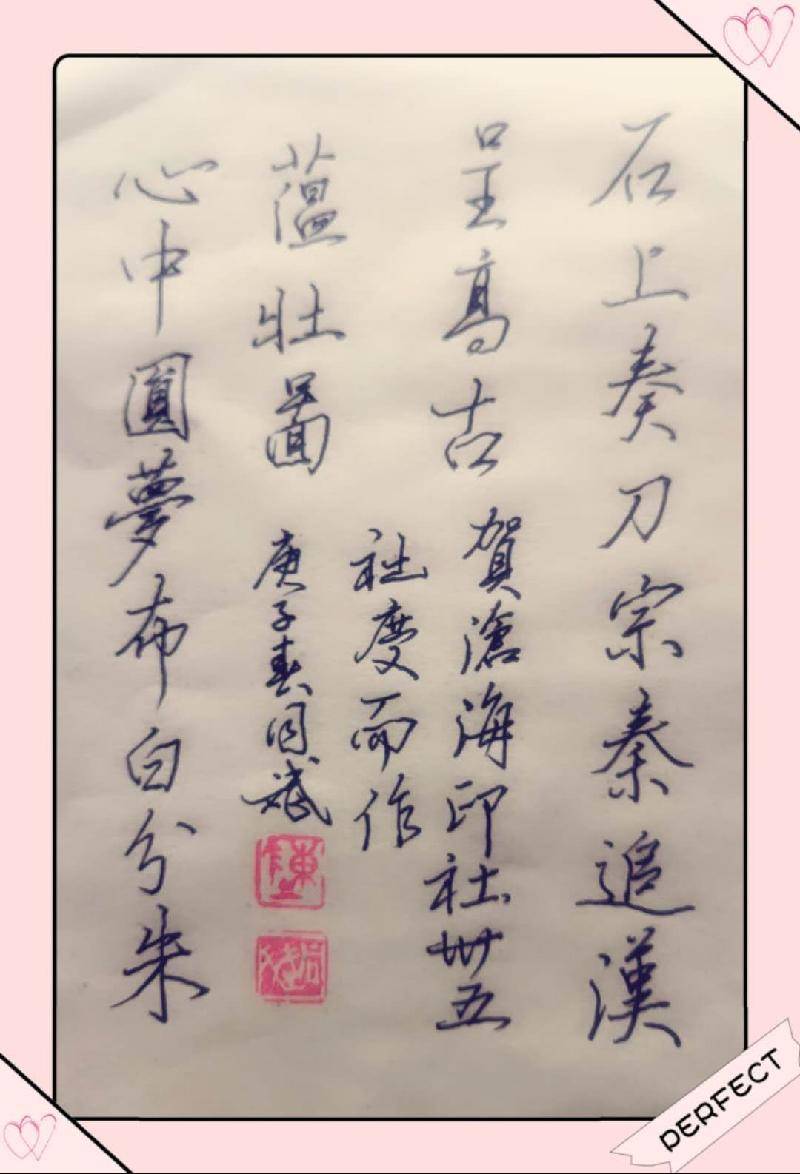 石上奏刀宗秦追漢
呈高古
賀滄海印社卅五
社慶而作
心中圓夢布白分朱
蕰壯圖
庚子春同斌
PERFECT